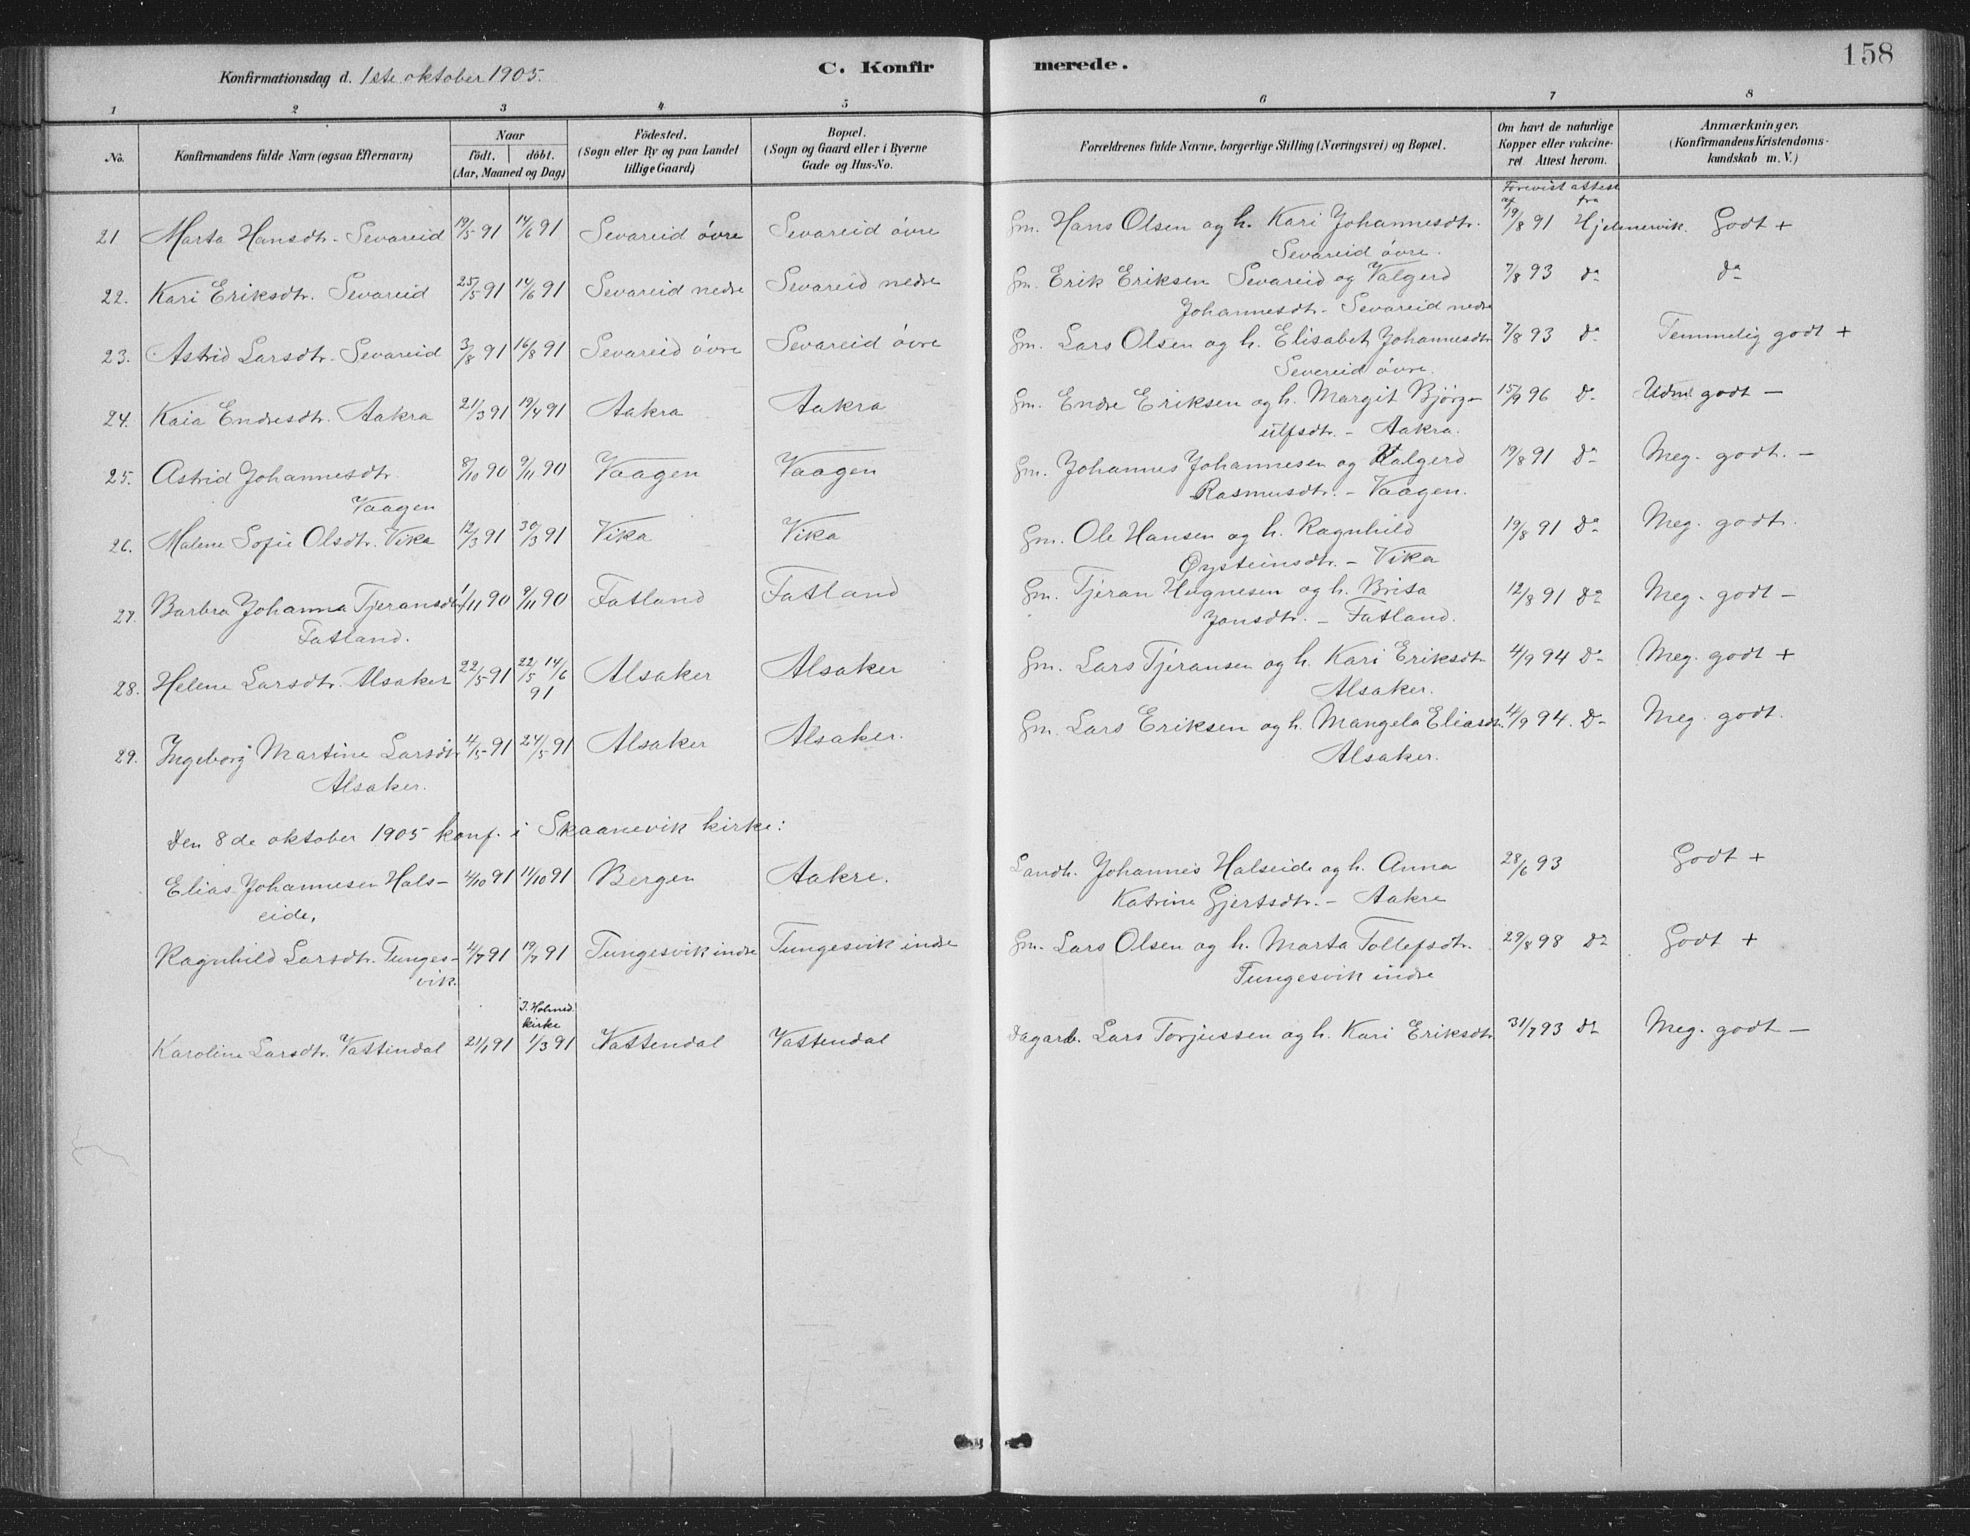 158
Konfirmationsdag d. 1ste oktober 1905. C. Konfirmerede.
1 2 3 4 5 6 7 8
No. Konfirmandens fulde Navn (ogsaa Efternavn) Naar födt. döbt. (Aar, Maaned og Dag) Födested. (Sogn eller By og paa Landet tillige Gaard) Bopæl. (Sogn og Gaard eller i Byerne Gade og Hus-No. Forældrenes fulde Navne, borgerlige Stilling (Næringsvei) og Bopæl. Om havt de naturlige Kopper eller vakcineret. Attest herom. Anmærkninger. (Konfirmandens Kristendomskundskab m. V.)
Forevist attest
af fra
21 Marta Hansdtr. Sevareid 19/5 91 14/6 91 Sevareid övre Sevareid övre Gm. Hans Olsen og h. Kari Johannesdtr. 19/8 91 Hjelmervik. Godt +
Sevareid övre.
22. Kari Eriksdtr. Sevareid 25/5 91 14/6 91 Sevareid nedre Sevareid nedre Gm. Erik Eriksen Sevareid og Valgerd 7/8 93 do do
Johannesdtr. Sevareid nedre
23. Astrid Larsdtr. Sevareid 3/8 91 16/8 91 Sevareid övre Sevareid övre Gm. Lars Olsen og h. Elisabet Johannesdtr 7/8 93 do Temmelig godt +
Severeid övre.
24. Kaia Endresdtr. Aakra 21/3 91 19/4 91 Aakra Aakra Gm. Endre Eriksen og h. Margit Bjørg- 15/9 96 Do Udm. godt -
ulfsdtr. - Aakra.
25. Astrid Johannesdtr. 8/10 90 9/11 90 Vaagen Vaagen Gm. Johannes Johannesen og Valgerd 19/8 91 Do Meg. godt. -
Vaagen Rasmusdtr. - Vaagen.
26. Malene Sofie Olsdtr. Vika 12/3 91 30/3 91 Vika Vika Gm. Ole Hansen og h. Ragnhild 19/8 91 Do Meg. godt.
Øysteinsdtr. - Vika
27. Barbra Johanna Tjeransdtr 1/11 90 9/11 90 Fatland Fatland Gm. Tjeran Hugnesen og h. Brita 12/8 91 Do Meg. godt -
Fatland. Jonsdtr. - Fatland.
28. Helene Larsdtr. Alsaker 22/5 91 22/5 14/6 91 Alsaker Alsaker Gm. Lars Tjeransen og h. Kari Eriksdtr 4/9 94 Do Meg. godt +
Alsaker.
29. Ingeborg Martine Larsdtr 4/5 91 24/5 91 Alsaker Alsaker. Gm. Lars Eriksen og h. Mangela Eliasdtr. 4/9 94. Do Meg. godt.
Alsaker. Alsaker.
Den 8de oktober 1905 konf. i Skaanevik kirke:
Elias Johannesen Hals- 4/10 91 11/10 91 Bergen Aakre. Landh. Johannes Halseide og h. Anna 28/6 93 Godt +
eide. Katrine Gjertsdtr. - Aakre
Ragnhild Larsdtr. Tunges- 4/7 91 19/7 91 Tungesvik indre Tungesvik indre Gm. Lars Olsen og h. Marta Tollefsdtr. 29/8 98 Do Godt +
vik. Tungesvik indre
I. Holmed.
kirke
Karoline Larsdtr. Vattendal 21/1 91 1/3 91 Vattendal Vattendal Dagarb. Lars Torjussen og h. Kari Eriksdtr 31/7 93 Do Meg. godt -